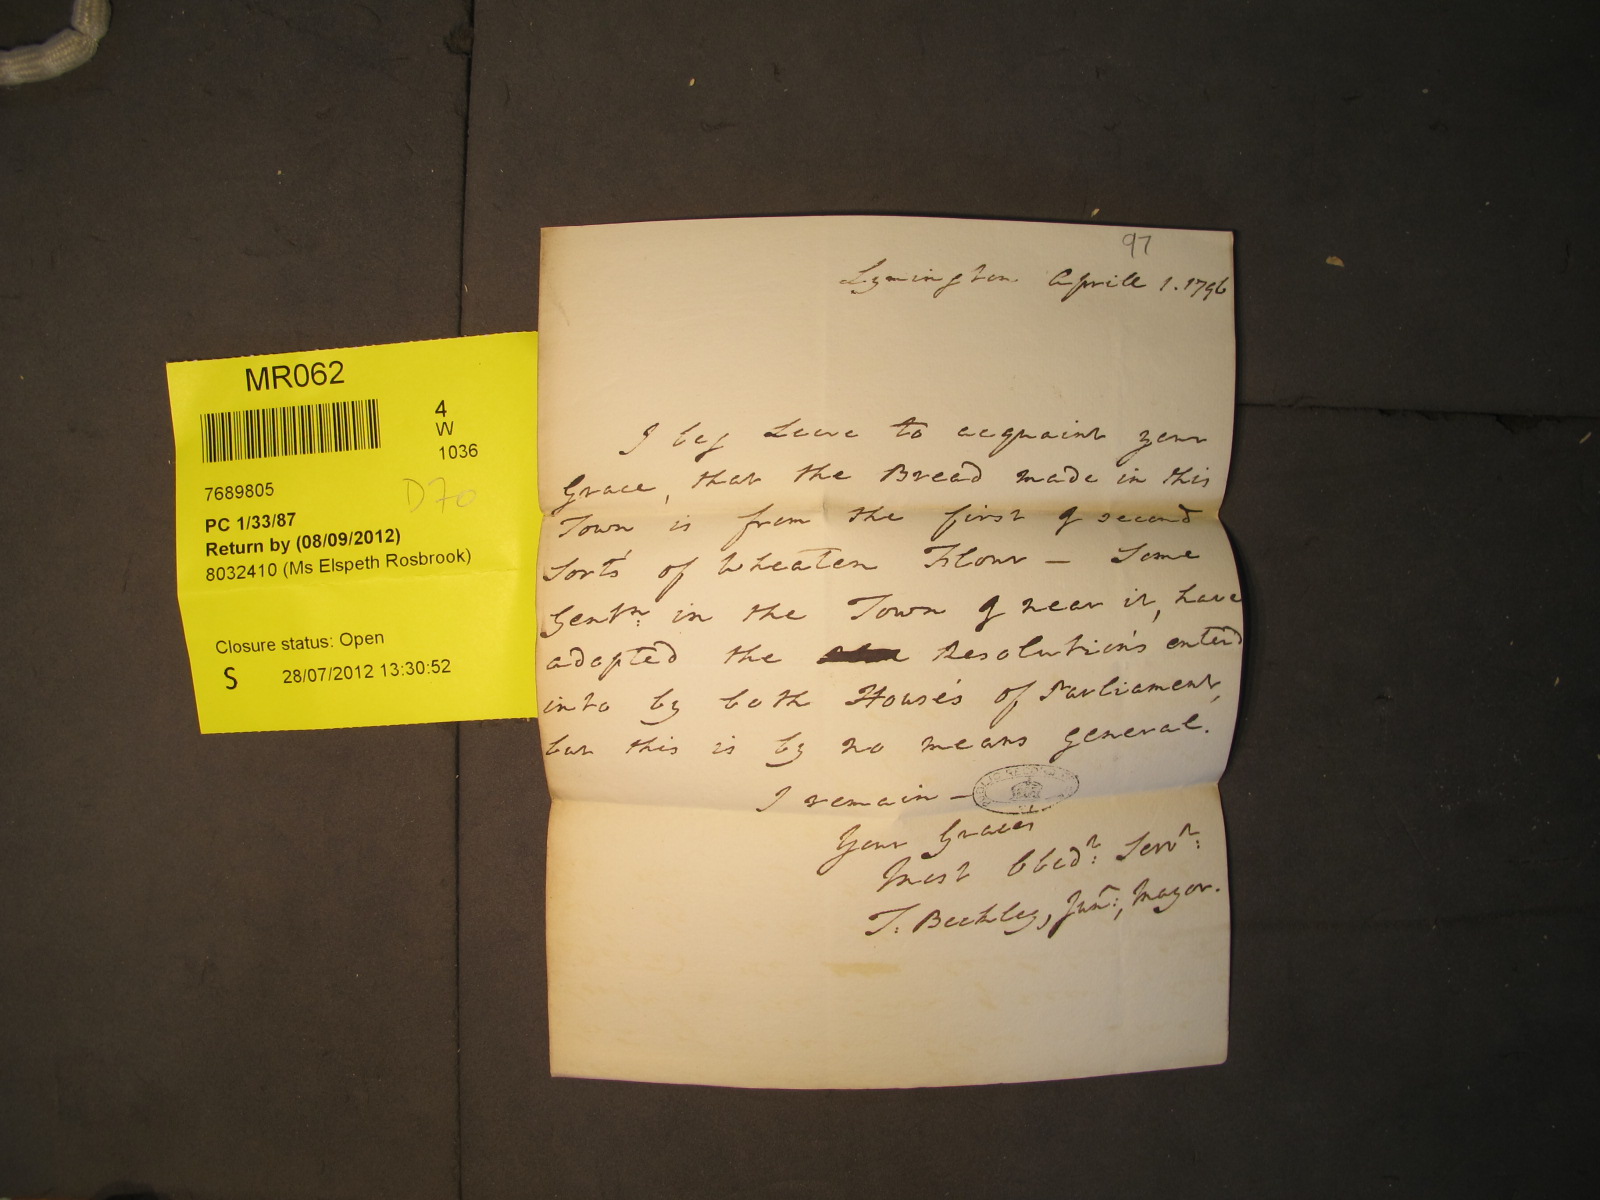 97
Lymington Aprill 1. 1796
I beg Leave to acquaint your
Grace, that the Bread made in this
Town is from the first & second
Sorts of Wheaten Flour — Some
Gentn: in the Town & near it, have
adopted the Resolution's enter'd
into by both House's of Parliament,
but this is by no means general.
I remain —
Your Graces
Most Obedt: Servt:
T: Beckley, Junr:, Mayor.
MR062
4
W
1036
7689805
D70
PC 1/33/87
Return by (08/09/2012)
8032410 (Ms Elspeth Rosbrook)
Closure status: Open
S 28/07/2012 13:30:52